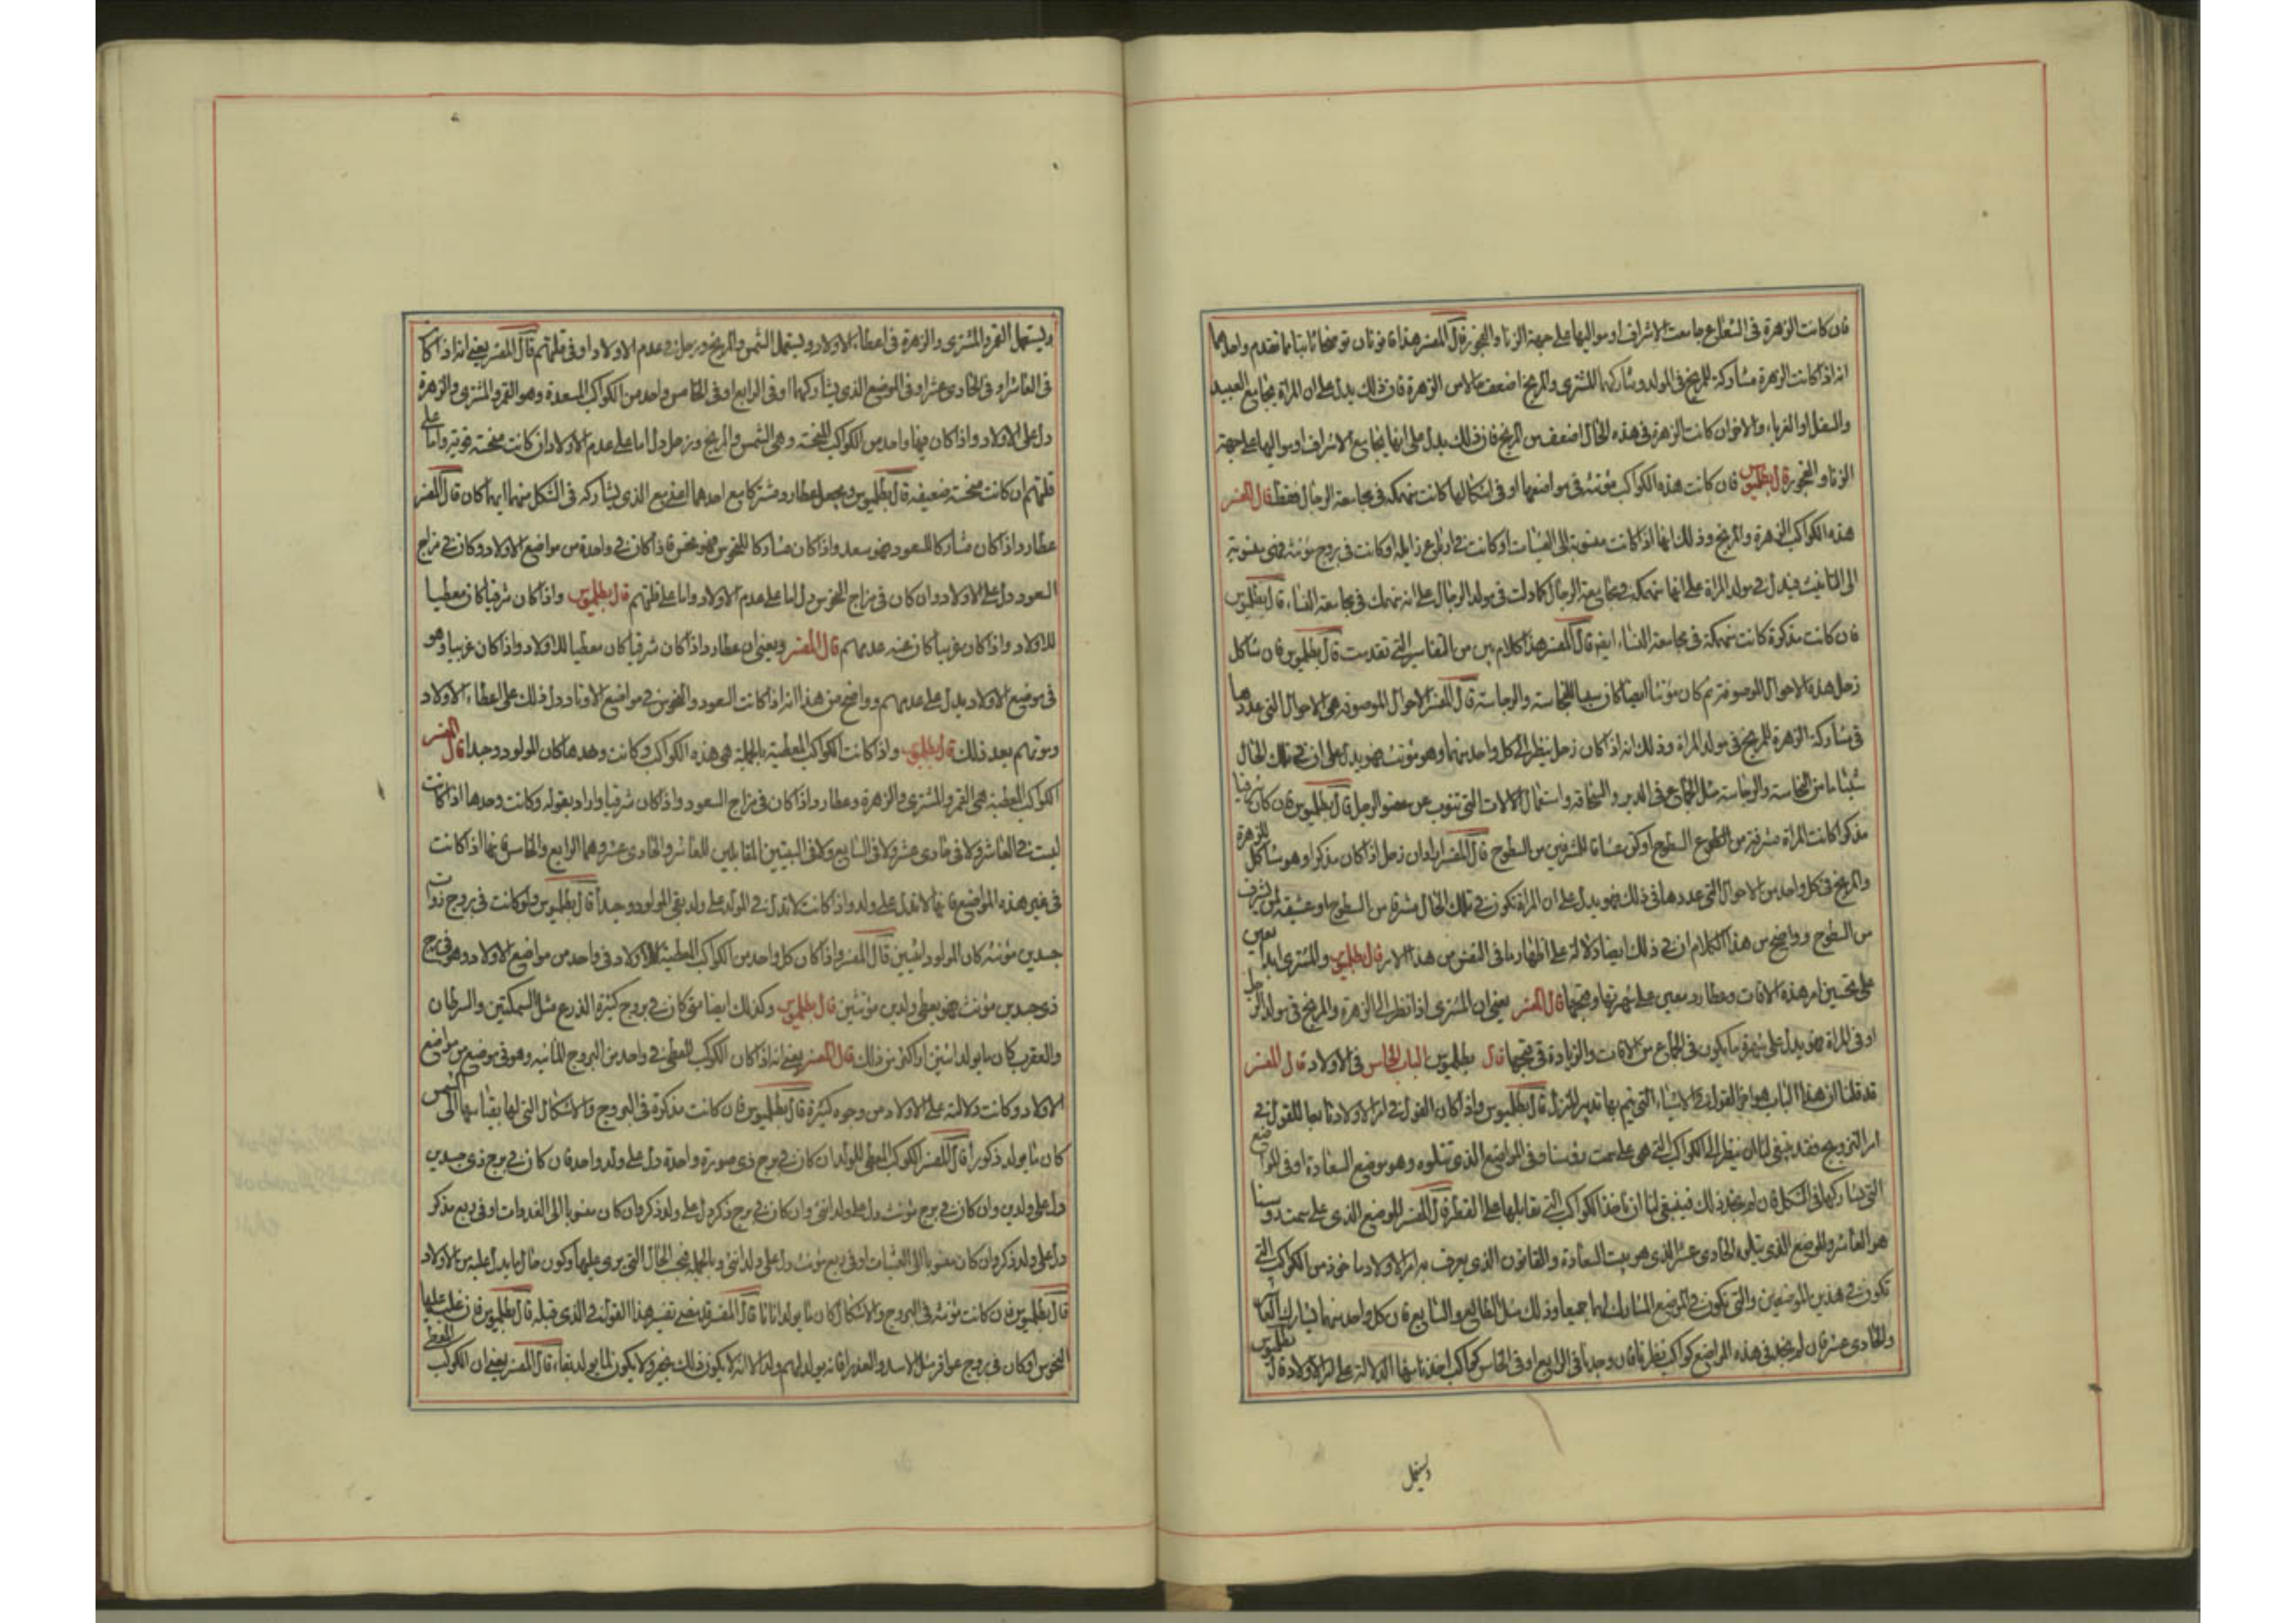 فان كانت الزهرة في الشعاع جامعت الاشراف او مواليها على جهة الزنا والفجور قال المفسر هذا قانونان توضحا ثانيا ما تقدم واحدهما
انه اذا كانت الزهرة مشاركة للمريخ في المولد وشاركهما المشتري والمريخ اضعف حالا من الزهرة فان ذلك يدل على ان المراة تجامع العبيد
والسفل او الغرباء والاخر ان كانت الزهرة في هذه الحال اضعف من المريخ فان ذلك يدل على انها تجامع الاشراف او مواليها على جهة
الزنا والفجور قال بطلميوس فان كانت هذه الكواكب مؤنثة في مواضعها او في اشكالها كانت منهمكة في مجامعة الرجال فقط قال المفسر
هذه الكواكب الزهرة والمريخ وذلك انها اذا كانت منسوبة الى العشيات او كانت في ارباع زايلة او كانت في بروج مؤنثة فهي منسوبة
الى التانيث فيدل في مولد المراة على انها منهمكة في مجامعة الرجال كما دلت في مولد الرجال على انه منهمك في مجامعة النساء قال بطلميوس
فان كانت مذكرة كانت منهمكة في مجامعة النساء ايضا قال المفسر هذا كلام بين من المقاييس التي تقدمت قال بطلميوس فان شاكل
زحل هذه الاحوال الموصوفة ثم كان مؤنثا ايضا كان سببا للنجاسة والرجاسة قال المفسر الاحوال الموصوفة هي الاحوال التي عددها
في مشاركة الزهرة للمريخ في مولد المراة وذلك انه اذا كان زحل ينظر الى كل واحد منهما وهو مؤنث فهو يدل على ان في تلك الحال
شيئا ما من النجاسة والرجاسة مثل الجماع في الدبر والسحاقة واستعمال الالات التي تنوب عن عضو الرجل قال بطلميوس فان كان شرقيا
مذكرا كانت المراة مشرفة من السطوح او تكون عشاقا للمشرفين من السطوح قال المفسر اراد ان زحل اذا كان مذكرا وهو مشاكل للزهرة
والمريخ في كل واحد من الاحوال التي عددها في ذلك فهو يدل على ان المراة تكون في تلك الحال مشرفا من السطوح او عشيقة لمن يشرف
من السطوح وواضح من هذا الكلام ان في ذلك ايضا دلالة على اظهار ما في النفس من هذا الامر قال بطلميوس والمشتري ابدا يعين
على تحسين امر هذه الافات وعطارد يعين على شهرتها وقبحها قال المفسر يعني ان المشتري اذا نظر الى الزهرة والمريخ في مولد الرجل
او في المراة فهو يدل على ما يكون في الجماع من الافات والزيادة في قبحها قال بطلميوس الباب الخامس في الاولاد قال المفسر
قد قلنا ان هذا الباب هو اخر القول في الاشياء التي يتم بها تدبير المنزل قال بطلميوس واذا كان القول في امر الاولاد تابعا للقول في
امر التزويج فقد ينبغي لنا ان ننظر الى الكواكب التي هي على سمت رؤسنا وفي الموضع الذي يتلوه وهو موضع السعادة او في المواضع
التي تشاركها في الشكل فان لم نجد ذلك فينبغي لنا ان ناخذ الكواكب التي تقابلها على القطر قال المفسر الموضع الذي على سمت رؤسنا
هو العاشر والموضع الذي يتلوه الحادي عشر الذي هو بيت السعادة والقانون الذي يعرف به امر الاولاد ماخوذ من الكواكب التي
تكون في هذين الموضعين والتي تكون في الموضع المشارك لهما جميعا وذلك مثل الطالع والسابع فان كل واحد منهما يشارك العاشر
والحادي عشر فان لم نجد في هذه المواضع كواكب نظرنا فان وجدنا في الرابع او في الخامس كواكب اخذنا منها الدلالة على امر الاولاد قال بطلميوس
ويستعمل
ويستعمل القمر والمشتري والزهرة في اعطاء الاولاد ويستعمل الشمس والمريخ وزحل في عدم الاولاد او في قلتهم قال المفسر يعني انه اذا كان
في العاشر او في الحادي عشر او في الموضع الذي يشاركهما او في الرابع او في الخامس واحد من الكواكب السعدة وهو القمر والمشتري والزهرة
دل على الاولاد واذا كان فيها واحد من الكواكب المنحسة وهي الشمس والمريخ وزحل دل اما على عدم الاولاد ان كانت منحسة قوية واما على
قلتهم ان كانت منحسة ضعيفة قال بطلميوس ويجعل عطارد مشتركا مع احدهما اعني مع الذي يشاركه في الشكل منهما ايهما كان قال المفسر
عطارد اذا كان مشاركا للسعود فهو سعد واذا كان مشاركا للنحوس فهو نحس فاذا كان في واحدة من مواضع الاولاد وكان في مزاج
السعود دل على الاولاد وان كان في مزاج النحوس دل اما على عدم الاولاد واما على قلتهم قال بطلميوس واذا كان شرقيا كان معطيا
للاولاد واذا كان غربيا كان عنه عدمهم قال المفسر ويعني ان عطارد اذا كان شرقيا كان معطيا للاولاد واذا كان غربيا وهو
في موضع الاولاد يدل على عدمهم وواضح من هذا انه اذا كانت السعود والنحوس في مواضع الاوتاد دل ذلك على اعطاء الاولاد
وموتهم بعد ذلك قال بطلميوس واذا كانت الكواكب المعطية بالجملة هي هذه الكواكب وكانت وحدها كان المولود وحيدا قال المفسر
الكواكب المعطية هي القمر والمشتري والزهرة وعطارد اذا كان في مزاج السعود واذا كان شرقيا واراد بقوله وكانت وحدها اذا كانت
ليست في العاشر ولا في حادي عشر ولا في السابع ولا في البيتين المقابلين للعاشر والحادي عشر وهما الرابع والخامس فانها اذا كانت
في غير هذه المواضع فانها لا تدل على ولد واذا كانت لا تدل في المولد على ولد بقي المولود وحيدا قال بطلميوس ولو كانت في بروج ذوات
جسدين مؤنثة كان المولود اثنين قال المفسر واذا كان كل واحد من الكواكب المعطية للاولاد في واحد من مواضع الاولاد وهو في برج
ذي جسدين مؤنث فهو يعطي ولدين مؤنثين قال بطلميوس وكذلك ايضا متى كان في بروج كثيرة الذرع مثل السمكتين والسرطان
والعقرب كان ما يولد اثنين او اكثر من ذلك قال المفسر يعني انه اذا كان الكوكب المعطي في واحد من البروج المائية وهو في موضع من مواضع
الاولاد وكانت دلالته على الاولاد من وجوه كثيرة قال بطلميوس فان كانت مذكرة في البروج والاشكال التي لها بقياسها الى الشمس
كان ما يولد ذكورا قال المفسر الكوكب المعطي للولد ان كان في برج ذي صورة واحدة دل على ولد واحد فان كان في برج ذي جسدين
دل على ولدين وان كان في برج مؤنث دل على ولد انثى وان كان في برج ذكر دل على ولد ذكر وان كان منسوبا الى الغدوات او في ربع مذكر
دل على ولد ذكر وان كان منسوبا الى العشيات او في ربع مؤنث دل على ولد انثى وبالجملة فبحسب الحال التي يرى عليها تكون حال ما يدل عليه من الاولاد
قال بطلميوس فان كانت مؤنثة في البروج والاشكال كان ما يولد اناثا قال المفسر قد مضى تفسير هذا القول في الذي قبله قال بطلميوس فان غلب عليها
النحوس او كان في بروج عواقر مثل الاسد والعذراء فانه يولد لهم ولد الا انه لا يكون ذلك بخير ولا يكون لما يولد بقاء قال المفسر يعني ان الكوكب المعطي